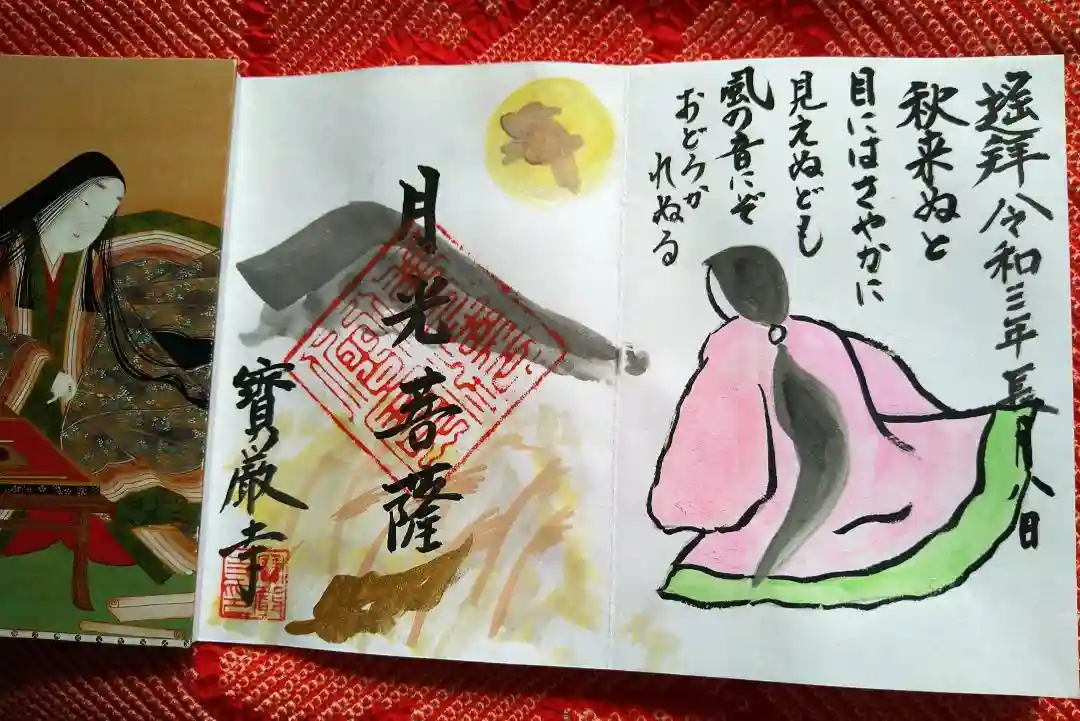 遥拝 令和三年 長月八日
秋来ぬと
目にはさやかに
見えぬども
風の音にぞ
おどろか
れぬる
月光菩薩
寳厳寺